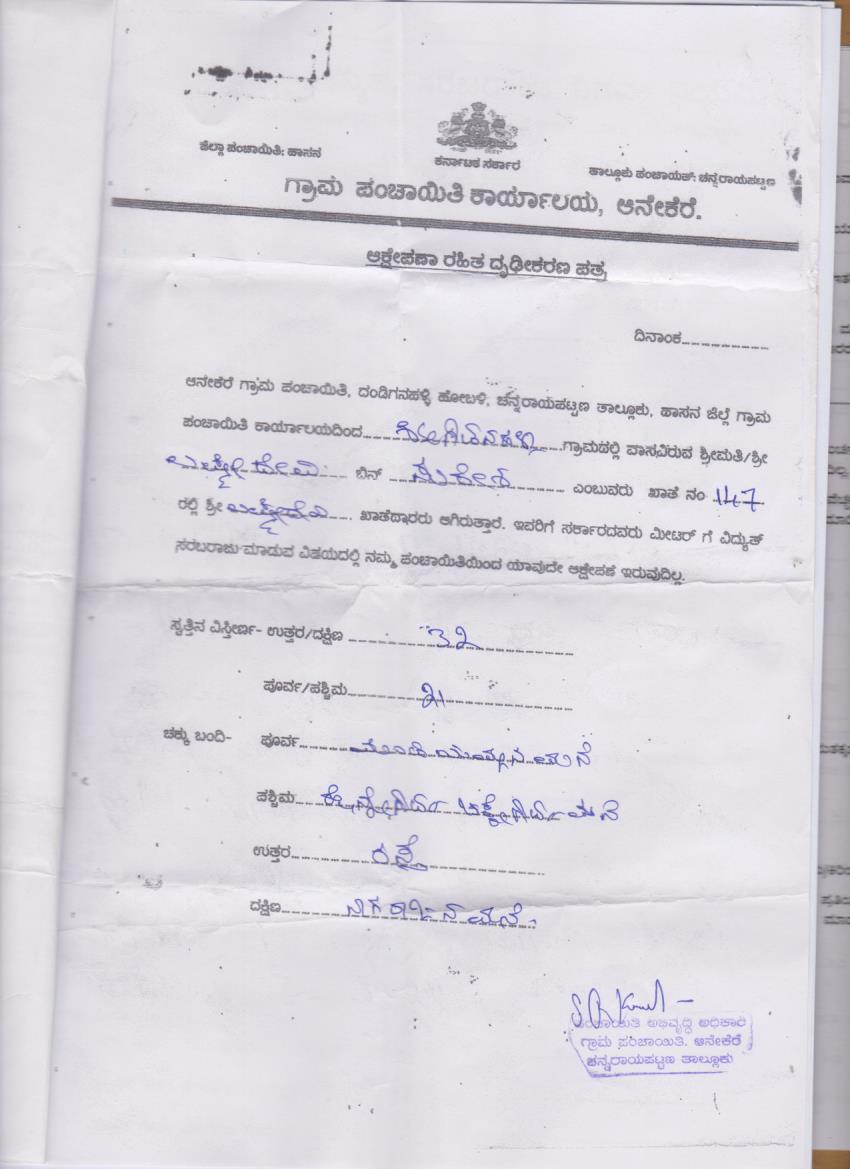 ಕರ್ನಾಟಕ ಸರ್ಕಾರ
ಜಿಲ್ಲಾ ಪಂಚಾಯಿತಿ: ಹಾಸನ
ತಾಲ್ಲೂಕು ಪಂಚಾಯತ್: ಚನ್ನರಾಯಪಟ್ಟಣ
ಗ್ರಾಮ ಪಂಚಾಯಿತಿ ಕಾರ್ಯಾಲಯ, ಆನೇಕೆರೆ.
ಆಕ್ಷೇಪಣಾ ರಹಿತ ದೃಢೀಕರಣ ಪತ್ರ
ದಿನಾಂಕ
ಆನೇಕೆರೆ ಗ್ರಾಮ ಪಂಚಾಯಿತಿ, ದಂಡಿಗನಹಳ್ಳಿ ಹೋಬಳಿ, ಚನ್ನರಾಯಪಟ್ಟಣ ತಾಲ್ಲೂಕು, ಹಾಸನ ಜಿಲ್ಲೆ ಗ್ರಾಮ
ಪಂಚಾಯಿತಿ ಕಾರ್ಯಾಲಯದಿಂದ ಗ್ರಾಮದಲ್ಲಿ ವಾಸವಿರುವ ಶ್ರೀಮತಿ/ಶ್ರೀ
ಬಿನ್ ಎಂಬುವರು ಖಾತೆ ನಂ 147
ರಲ್ಲಿ ಶ್ರೀ ಖಾತೆದಾರರು ಆಗಿರುತ್ತಾರೆ. ಇವರಿಗೆ ಸರ್ಕಾರದವರು ಮೀಟರ್ ಗೆ ವಿದ್ಯುತ್
ಸರಬರಾಜು ಮಾಡುವ ವಿಷಯದಲ್ಲಿ ನಮ್ಮ ಪಂಚಾಯಿತಿಯಿಂದ ಯಾವುದೇ ಆಕ್ಷೇಪಣೆ ಇರುವುದಿಲ್ಲ.
ಸ್ವತ್ತಿನ ವಿಸ್ತೀರ್ಣ- ಉತ್ತರ/ದಕ್ಷಿಣ 32
ಪೂರ್ವ/ಪಶ್ಚಿಮ 21
ಚಕ್ಕು ಬಂದಿ- ಪೂರ್ವ ಮನೆ
ಪಶ್ಚಿಮ ಮನೆ
ಉತ್ತರ ರಸ್ತೆ
ದಕ್ಷಿಣ ಮನೆ
ಪಂಚಾಯಿತಿ ಅಭಿವೃದ್ಧಿ ಅಧಿಕಾರಿ
ಗ್ರಾಮ ಪಂಚಾಯಿತಿ, ಆನೇಕೆರೆ
ಚನ್ನರಾಯಪಟ್ಟಣ ತಾಲ್ಲೂಕು